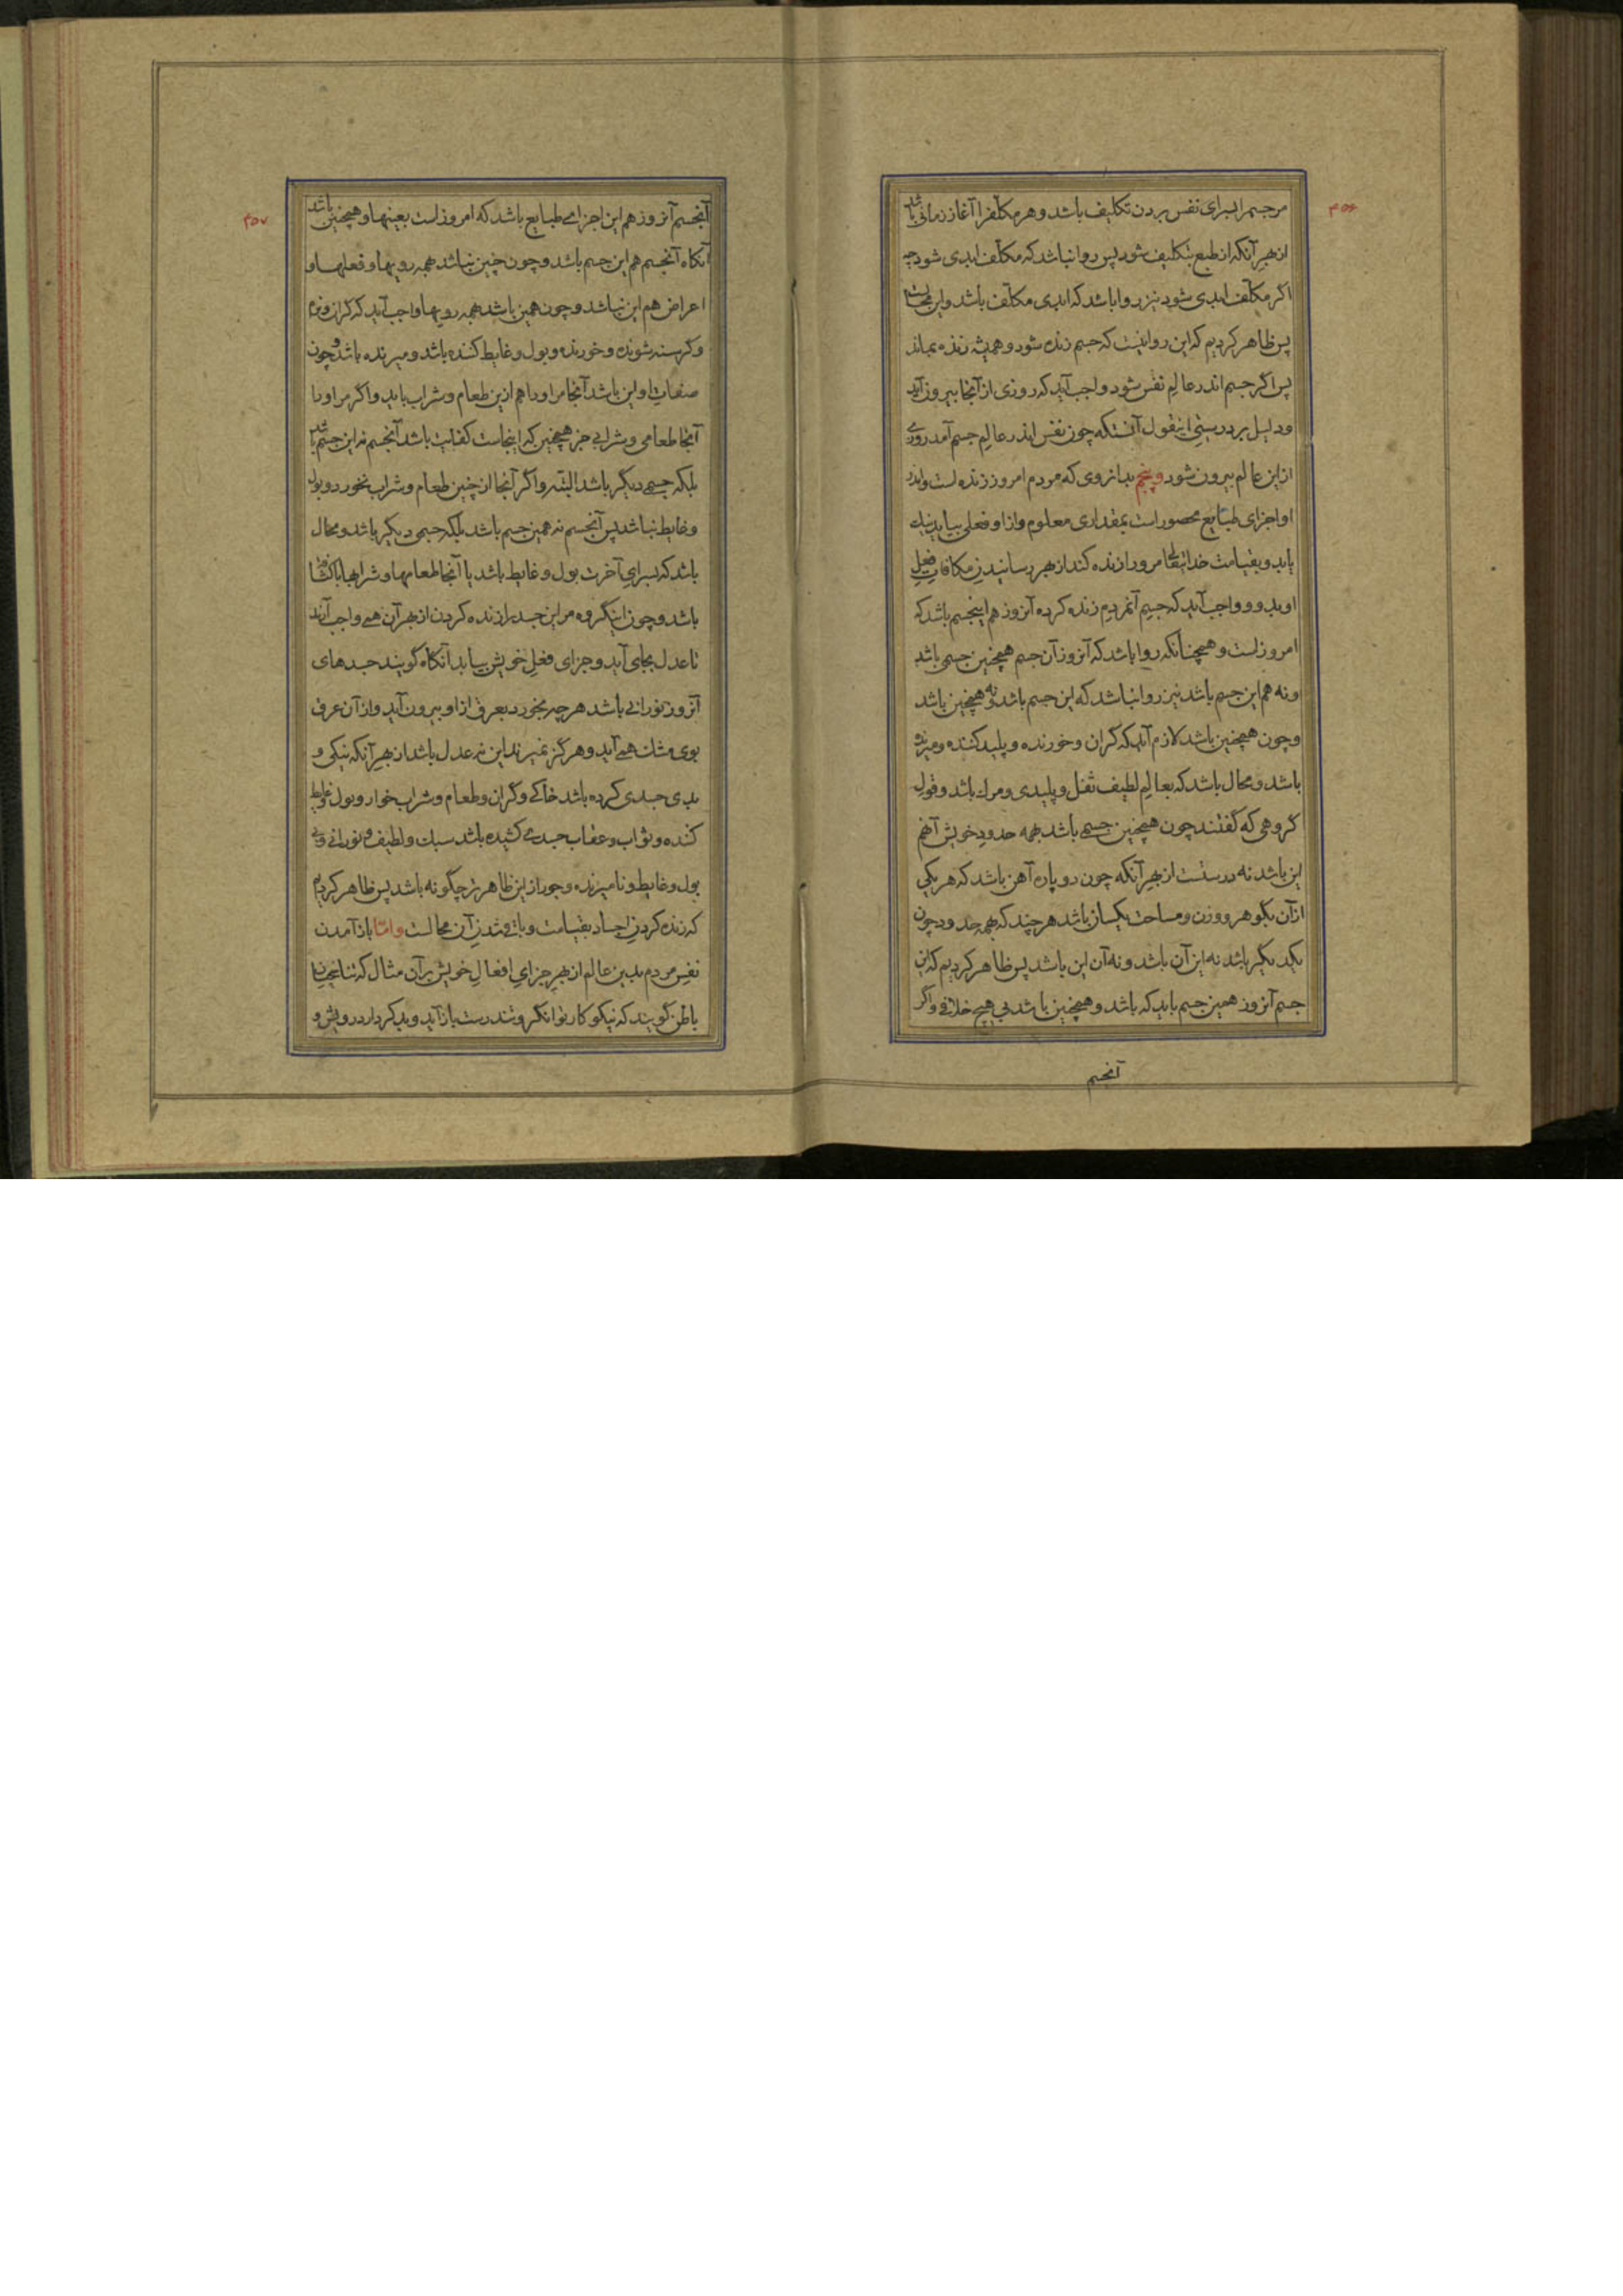 ۴۵۶
مر جسم را برای نفس بردن تکلیف باشد و هر مکلف را آغاز زمانی باشد
از بهر آنکه از طبع بتکلیف شود پس روا نباشد که مکلف ابدی شود چه
اگر مکلف ابدی شود نیز روا باشد که ابدی مکلف باشد و این محالست
پس ظاهر کردیم که این روا نیست که جسم زنده شود و همیشه زنده بماند
پس اگر جسم اندر عالم نفس شود واجب آید که روزی از آنجا بیرون آید
و دلیل بر درستی اینقول آنستکه چون نفس اندر عالم جسم آمد روزی
از این عالم بیرون شود و پنجم بدانروی که مردم امروز زنده است و اندر
او اجزای طبایع محصور است بمقداری معلوم و از او فعلی بیاید نیک
یا بد و بقیامت خدایتعالی مر او را زنده کند از بهر رسانیدن مکافات فعل
او بدو و واجب آید که جسم آنمردم زنده کرده آنروز هم اینجسم باشد که
امروز است و همچنانکه روا باشد که آنروز آن جسم همچنین جسمی باشد
و نه هم این جسم باشد نیز روا نباشد که این جسم باشد و نه همچنین باشد
و چون همچنین باشد لازم آید که گران و خورنده و پلید کننده و میرنده
باشد و محال باشد که بعالم لطیف ثقل و پلیدی و مرگ باشد و قول
گروهی که گفتند چون همچنین جسمی باشد بهمه حدود خویش آنهم
این باشد نه درستست از بهر آنکه چون دو پاره آهن باشد که هر یکی
از آن بگوهر و وزن و مساحت یکسان باشد هر چند که بهمه حدود چون
یکدیگر باشد نه این آن باشد و نه آن این باشد پس ظاهر کردیم که این
جسم آنروز همین جسم باید که باشد و همچنین باشد بی هیچ خلافی و اگر
آنجسم
۴۵۷
آنجسم آنروز هم این اجزای طبایع باشد که امروز است بعینها و همچنین باشد
آنگاه آنجسم هم این جسم باشد و چون چنین نباشد همه رویها و فعلها و
اعراض هم این نباشد و چون همین باشد بهمه رویها واجب آید که گران و نرم
و گرسنه شونده و خورنده و بول و غایط کننده باشد و میرنده باشد و چون
صفات او این باشد آنجا مر او را هم ازین طعام و شراب باید و اگر مر او را
آنجا طعامی و شرابی جز همچنین که اینجاست کفایت باشد آنجسم نه این جسم باشد
بلکه جسمی دیگر باشد البته و اگر آنجا از چنین طعام و شراب نخورد و بول
و غایط نباشد پس آنجسم نه همین جسم باشد بلکه جسمی دیگر باشد و محال
باشد که بسرای آخرت بول و غایط باشد یا آنجا طعامها و شرابها با
باشد و چون اینگروه مر این جسد را زنده کردن از بهر آن همی واجب آرند
تا عدل بجای آید و جزای فعل خویش بیابد آنگاه گویند جسدهای
آنروز نورانی باشد هر چه بخورد بعرق از او بیرون آید و از آن عرق
بوی مشک همی آید و هرگز نمیرند این نه عدل باشد از بهر آنکه نیکی و
بدی جسدی کرده باشد خاکی و گران و طعام و شراب خوار و بول و غایط
کننده و ثواب و عقاب جسدی کشیده باشد سبک و لطیف و نورانی و بی
بول و غایط و نامیرنده و جور از این ظاهرتر چگونه باشد پس ظاهر کردیم
که زنده کردن اجساد بقیامت و باقی شدن آن محالست و اما باز آمدن
نفس مردم بدین عالم از بهر جزای افعال خویش بر آن مثال که تناسخیان
باطن گویند که نیکوکار توانگر و تندرست باز آید و بدکردار درویش و